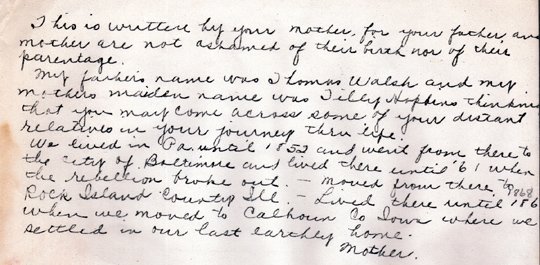 This is written by your mother, for your father, and
mother are not ashamed of their birth nor of their
parentage.
My father's name was Thomas Walsh and my
mothers maiden name was Tilly Hopkins thinking
that you may come across some of your distant
relatives in your journey thru life.
We lived in Pa. until 1852 and went from there to
the city of Baltimore and lived there until '61 when
the rebellion broke out. - moved from there, to
Rock Island County Ill. - Lived there until 1868
when we moved to Calhoun Co Iowa where we
settled in our last earthly home.
Mother.